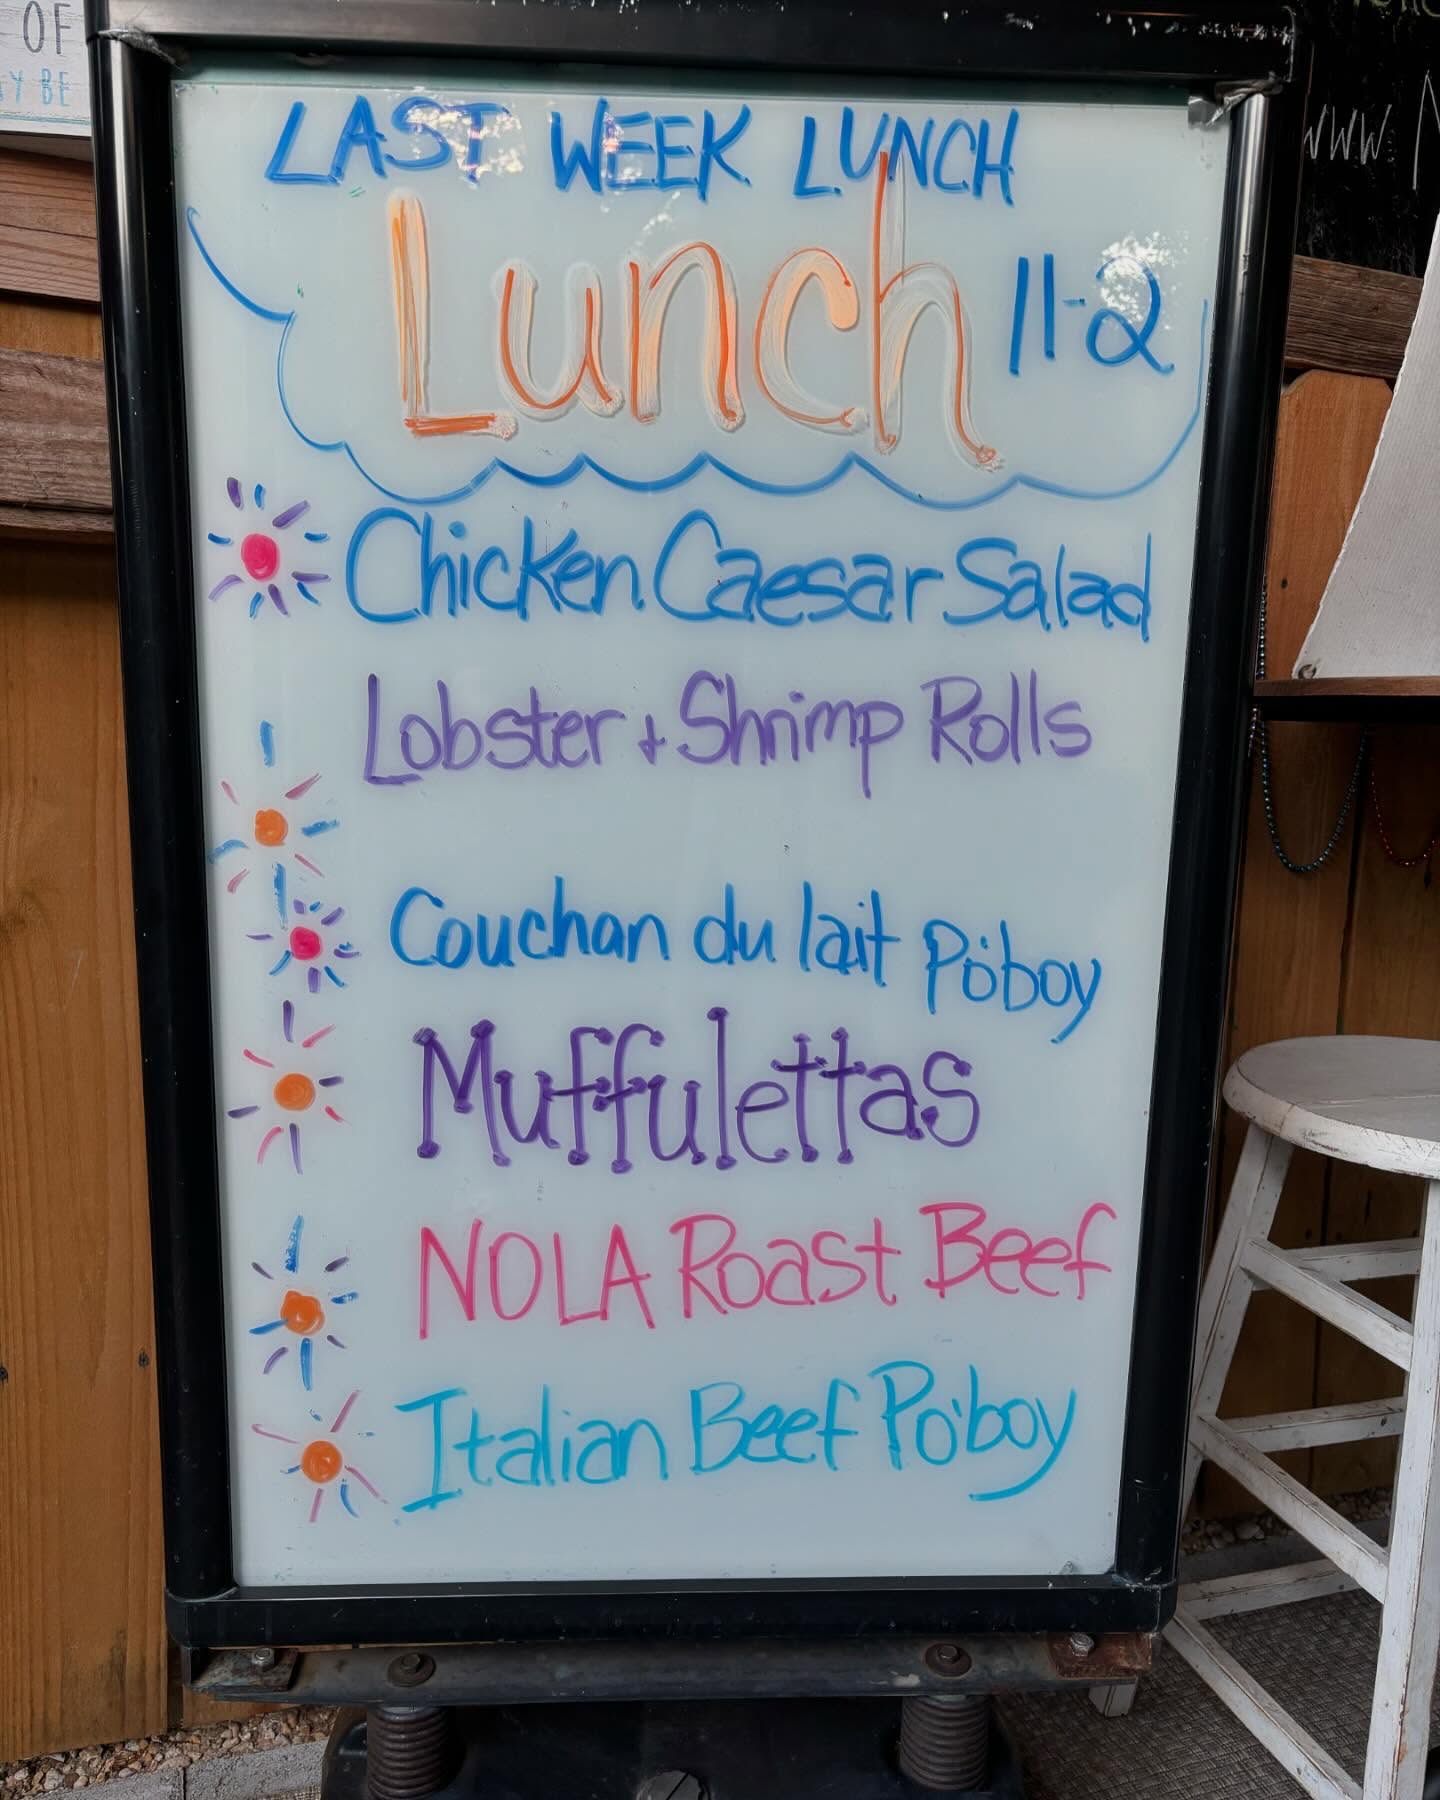 OF
AY BE
LAST WEEK LUNCH
Lunch 11-2
Chicken Caesar Salad
Lobster + Shrimp Rolls
Couchan du lait Po'boy
Muffulettas
NOLA Roast Beef
Italian Beef Po'boy
www